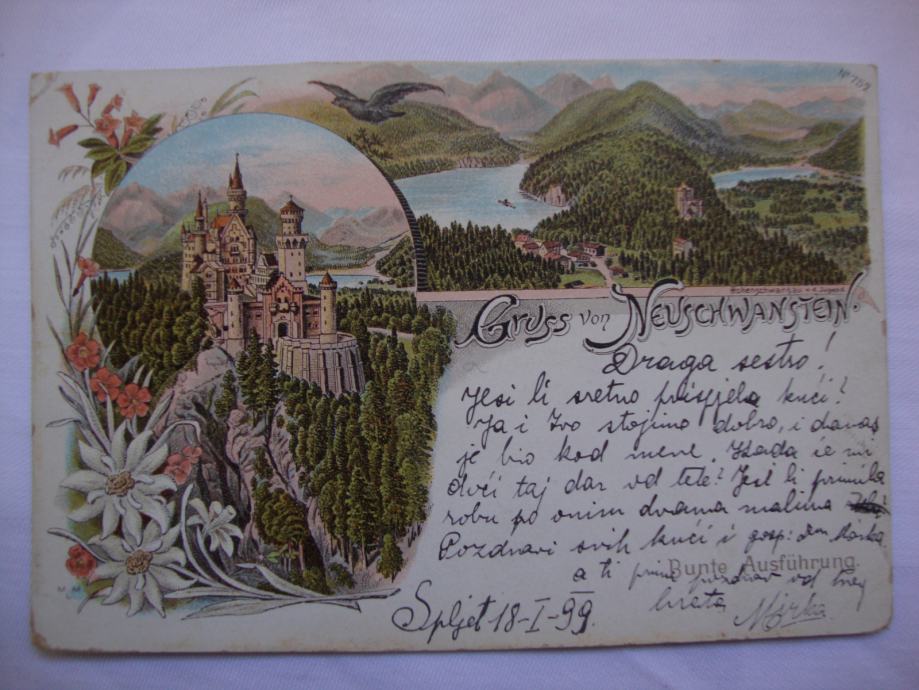 No 789
Hohenschwangau v. d. Jugend
Gruss von Neuschwanstein.
Draga sestro!
Jesi li sretno prispjela kući?
Ja i Ivo stojimo dobro, i danas
je bio kod mene. Kada će mi
doći taj dar od tete? Jesi li primila
robu po onim dvama malima
Pozdravi svih kući i gosp: don Marka
a ti primi pozdrav od tvog
brata Mirka
Bunte Ausführung.
Spljet 18-I-99.
M M